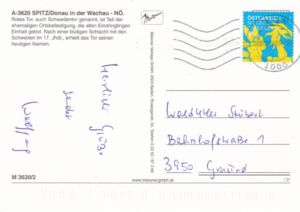 A-3620 SPITZ/Donau in der Wachau - NÖ.
Rotes Tor, auch Schwedentor genannt, ist Teil der
ehemaligen Ortsbefestigung, die allen Eindringlingen
Einhalt gebot. Nach einer blutigen Schlacht mit den
Schweden im 17. Jhdt., erhielt das Tor seinen
heutigen Namen.
Herzliche Grüße
sendet
Wolfgang
M 3620/2
www.malunar.at
ÖSTERREICH
Waldviertler Stüberl
Bahnhofstraße 1
3950 Gmünd